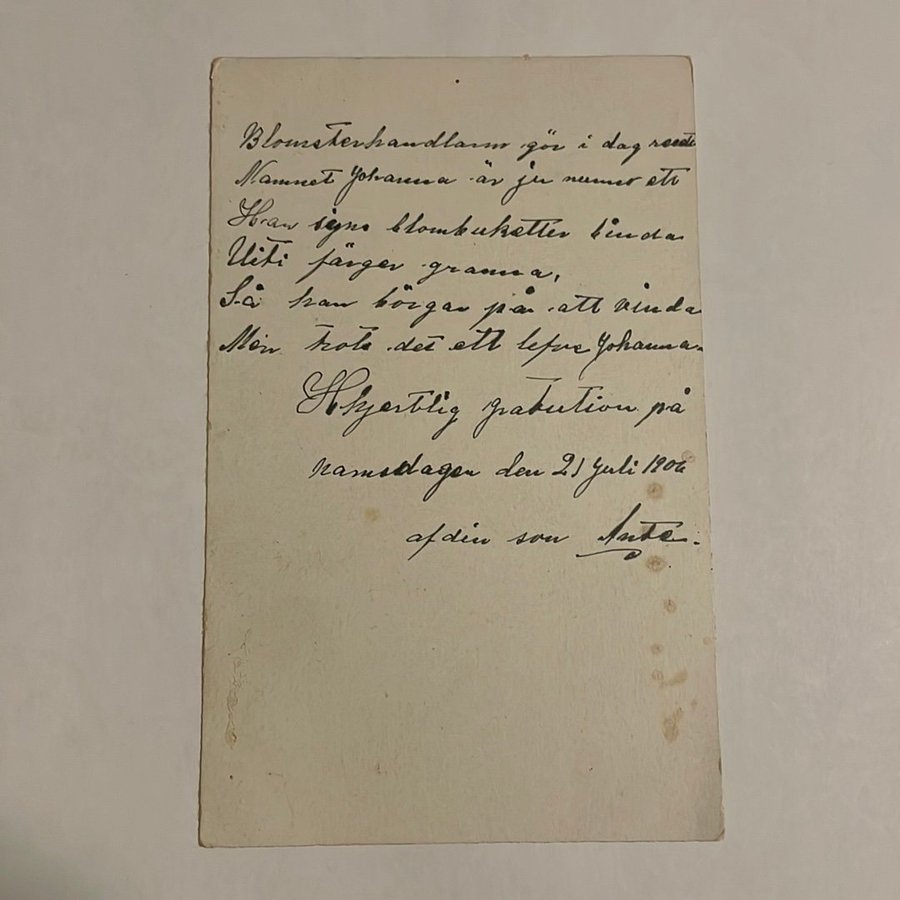 Blomsterhandlarn gör i dag
Namnet Johanna är ju numro ett
Han syns blombuketter binda
Uiti färger granna,
Så han börgar på att vinda
Men trots det ett lefve Johanna.
Hkjertlig gratution på
namsdagen den 21 Juli 1906
af din son